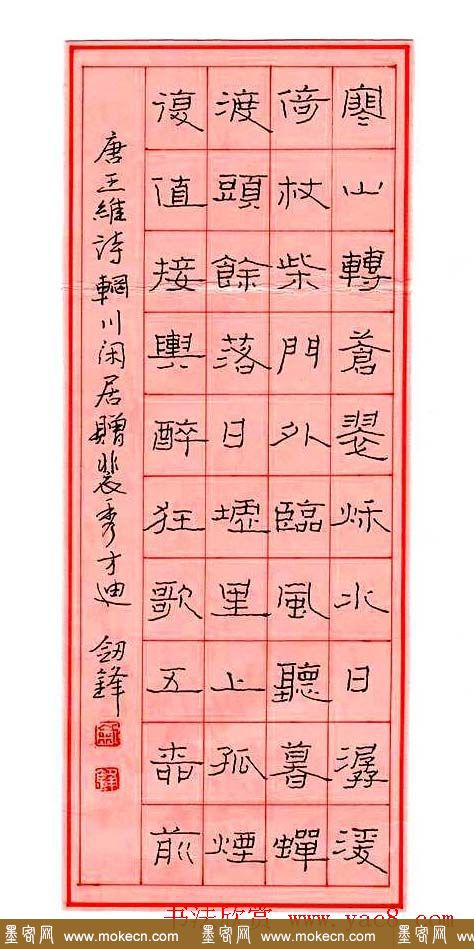 寒山轉蒼翠秌水日潺湲
倚杖柴門外臨風聽暮蟬
渡頭餘落日墟里上孤煙
復值接輿醉狂歌五柳前
唐王維诗輞川闲居贈裴秀才迪 劍鋒
书法欣赏 www.yac8.com
墨客网 www.mokecn.com 墨客网 www.mokecn.com 墨客网 www.mokecn.com